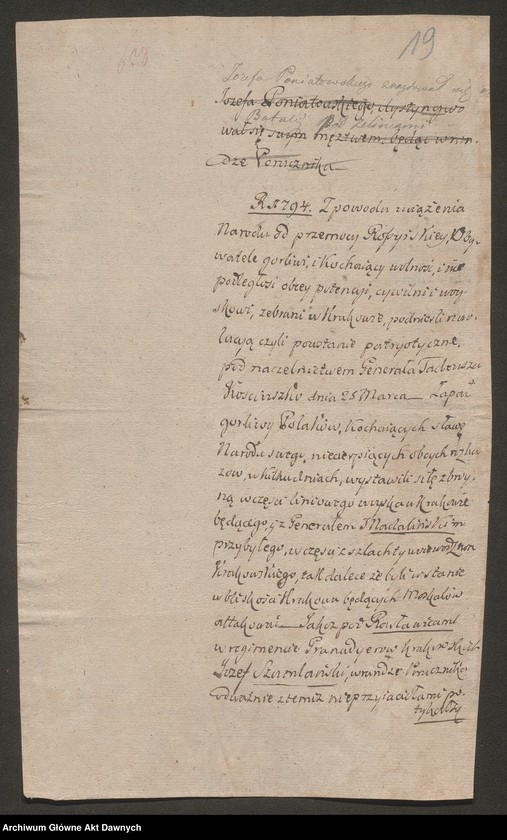 19
Józefa Poniatowskiego znajdował się w
Józefa Poniatowskiego, dystyngwo
Batalii pod Zielincami
wał się swym męztwem. będąc w ran-
dze Porucznika
R. 1794. Z powodu uciążenia
Narodu od przemocy Rossyiskiey, Oby-
watele gorliwi, i kochaiący wolność, i nie
podległość obcey potencyi, cywilni i woy-
skowi, zebrani w Krakowie, podnieśli rewo-
lucyą czyli powstanie patryotyczne,
pod naczelnictwem Generała Tadeusza
Kościuszki dnia 25 Marca — Zapał
gorliwy Polaków, kochaiących sławę
Narodu swego, niecierpiących obcych rozka
zów, w kilku dniach, wystawili siłę zbroy-
ną w części liniowego woyska w Krakowie
będącego, i z Generałem Madalińskim
przybyłego, w części z szlachty woiewodztwa
Krakowskiego, tak dalece że byli w stanie
w bliskości Krakowa będących Moskalów
attakować — Jakoż pod Racławicami
w regimencie Granadyerów Krakowskich
Józef Szumlański, w randze Porucznika
odważnie z temiż nieprzyiaciołami po-
tykał się
Archiwum Główne Akt Dawnych